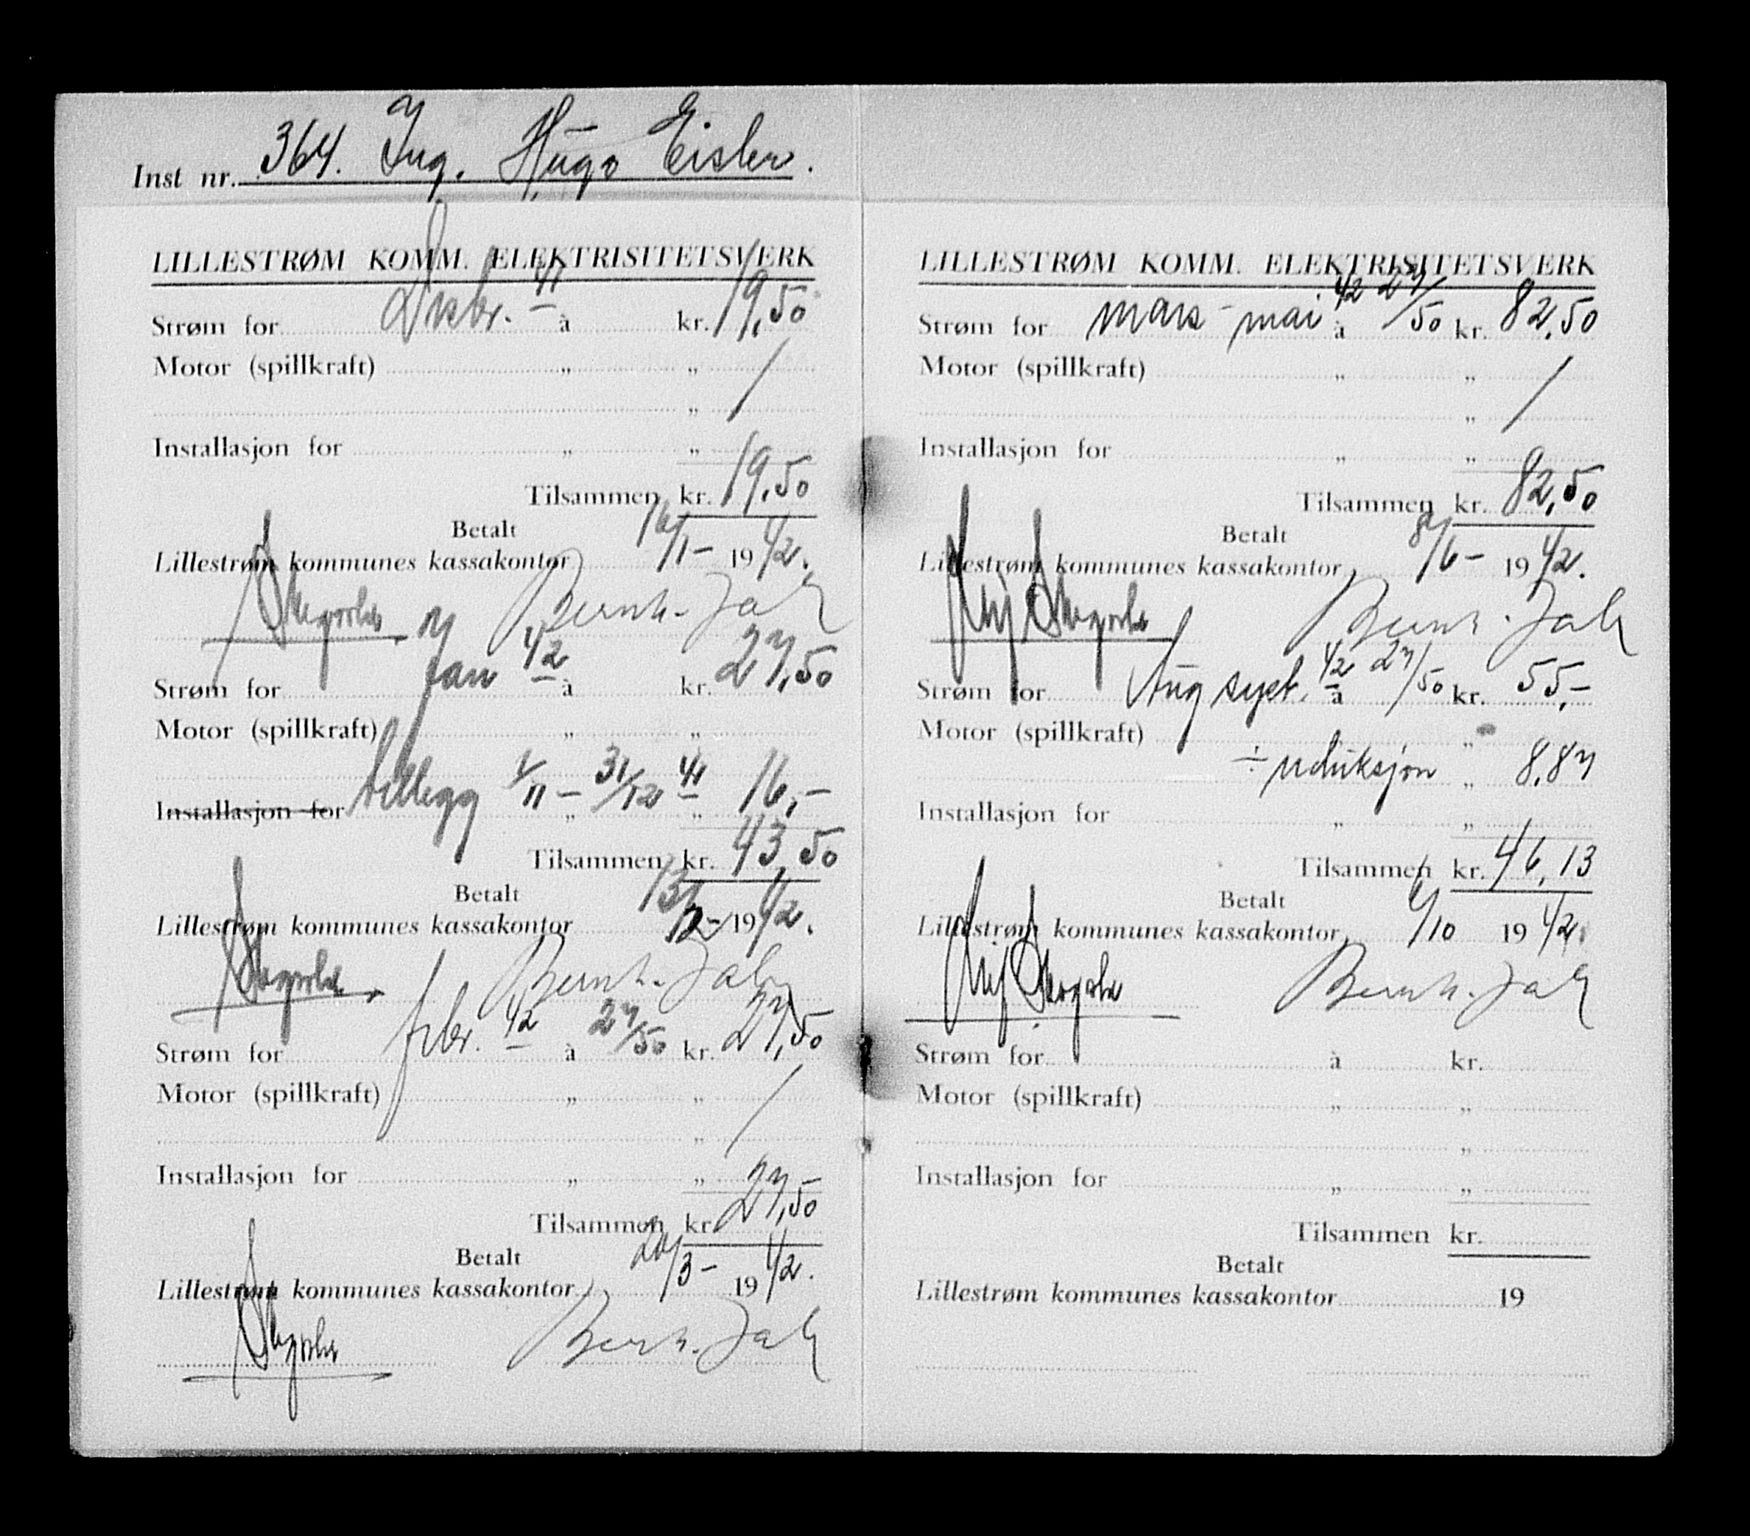 Inst nr. 364. Ing. Hugo Eisler.
LILLESTRØM KOMM. ELEKTRISITETSVERK
Strøm for Desbr. 41 à kr. 19,50
Motor (spillkraft) „ „ /
„
Installasjon for „ „
Tilsammen kr. 19,50
Betalt
Lillestrøm kommunes kassakontor 16/1- 1942.
Bernh. Jak
Strøm for jan 42 à kr. 27,50
Motor (spillkraft) „ „
Installasjon for tillegg 1/11 - 31/12 41 „ „ 16,-
Tilsammen kr. 43,50
Betalt
Lillestrøm kommunes kassakontor 13/2- 1942.
Bernh. Jak
Strøm for febr. 42 à 27/50 kr. 27,50
Motor (spillkraft) „ „ /
„
Installasjon for „ „
Tilsammen kr. 27,50
Betalt
Lillestrøm kommunes kassakontor 20/3- 1942.
Bernh. Jak
LILLESTRØM KOMM. ELEKTRISITETSVERK
Strøm for mars - mai 42 à 27/50 kr. 82,50
Motor (spillkraft) „ „ /
„
Installasjon for „ „
Tilsammen kr. 82,50
Betalt
Lillestrøm kommunes kassakontor 8/6- 1942.
Bernh. Jak
Strøm for Aug sept. 42 à 27/50 kr. 55,-
Motor (spillkraft) „
÷ reduksjon „ 8,87
Installasjon for „ „
Tilsammen kr. 46,13
Betalt
Lillestrøm kommunes kassakontor /10 1942
Bernh. Jak
Strøm for à kr.
Motor (spillkraft) „ „
„
Installasjon for „ „
Tilsammen kr.
Betalt
Lillestrøm kommunes kassakontor 19